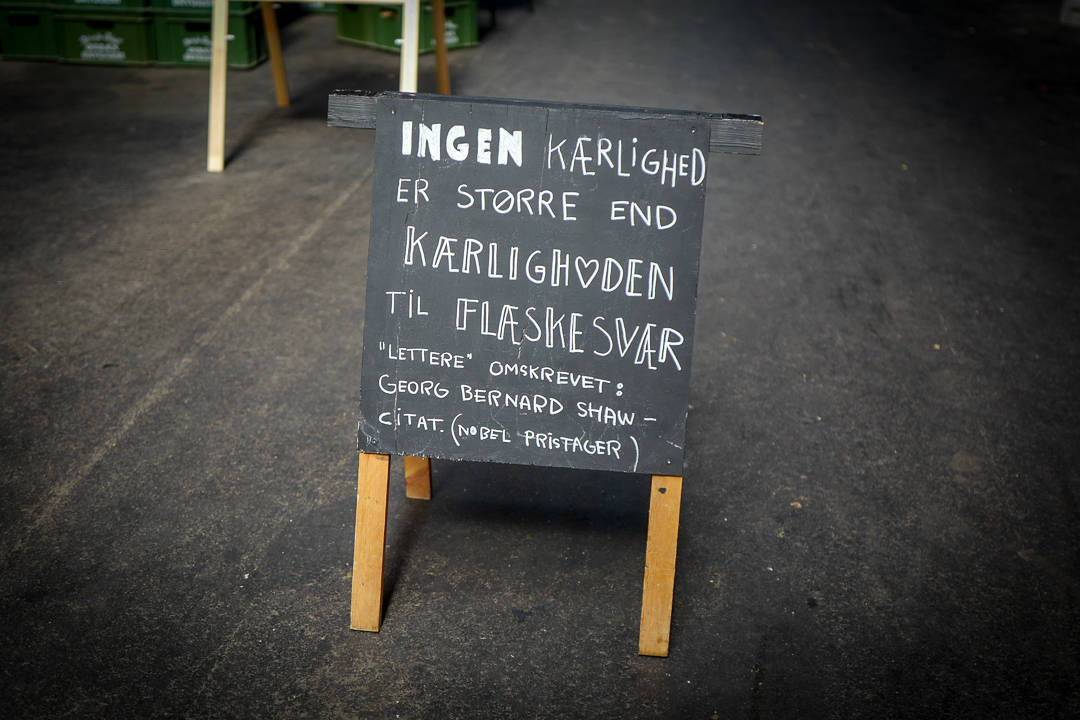 INGEN KÆRLIGHED
ER STØRRE END
KÆRLIGH♡DEN
TIL FLÆSKESVÆR
"LETTERE" OMSKREVET:
GEORG BERNARD SHAW -
CITAT. (NOBEL PRISTAGER)